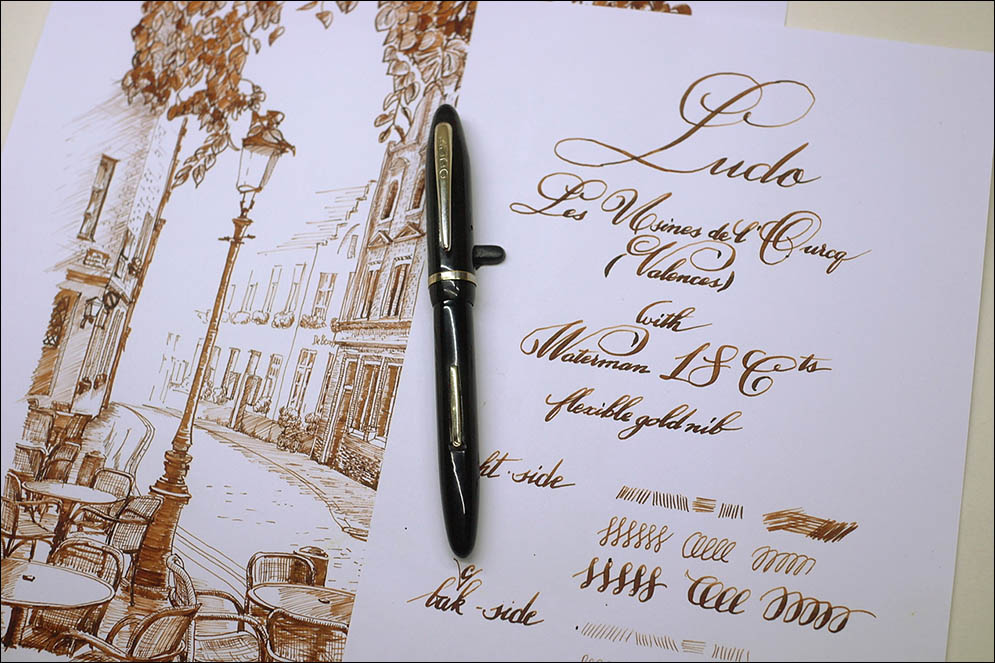 Ludo
Les Usines de l'Ourcq
(Valences)
with
Waterman 18 Cts
flexible gold nib
ht-side
&
bak-side
LUDO